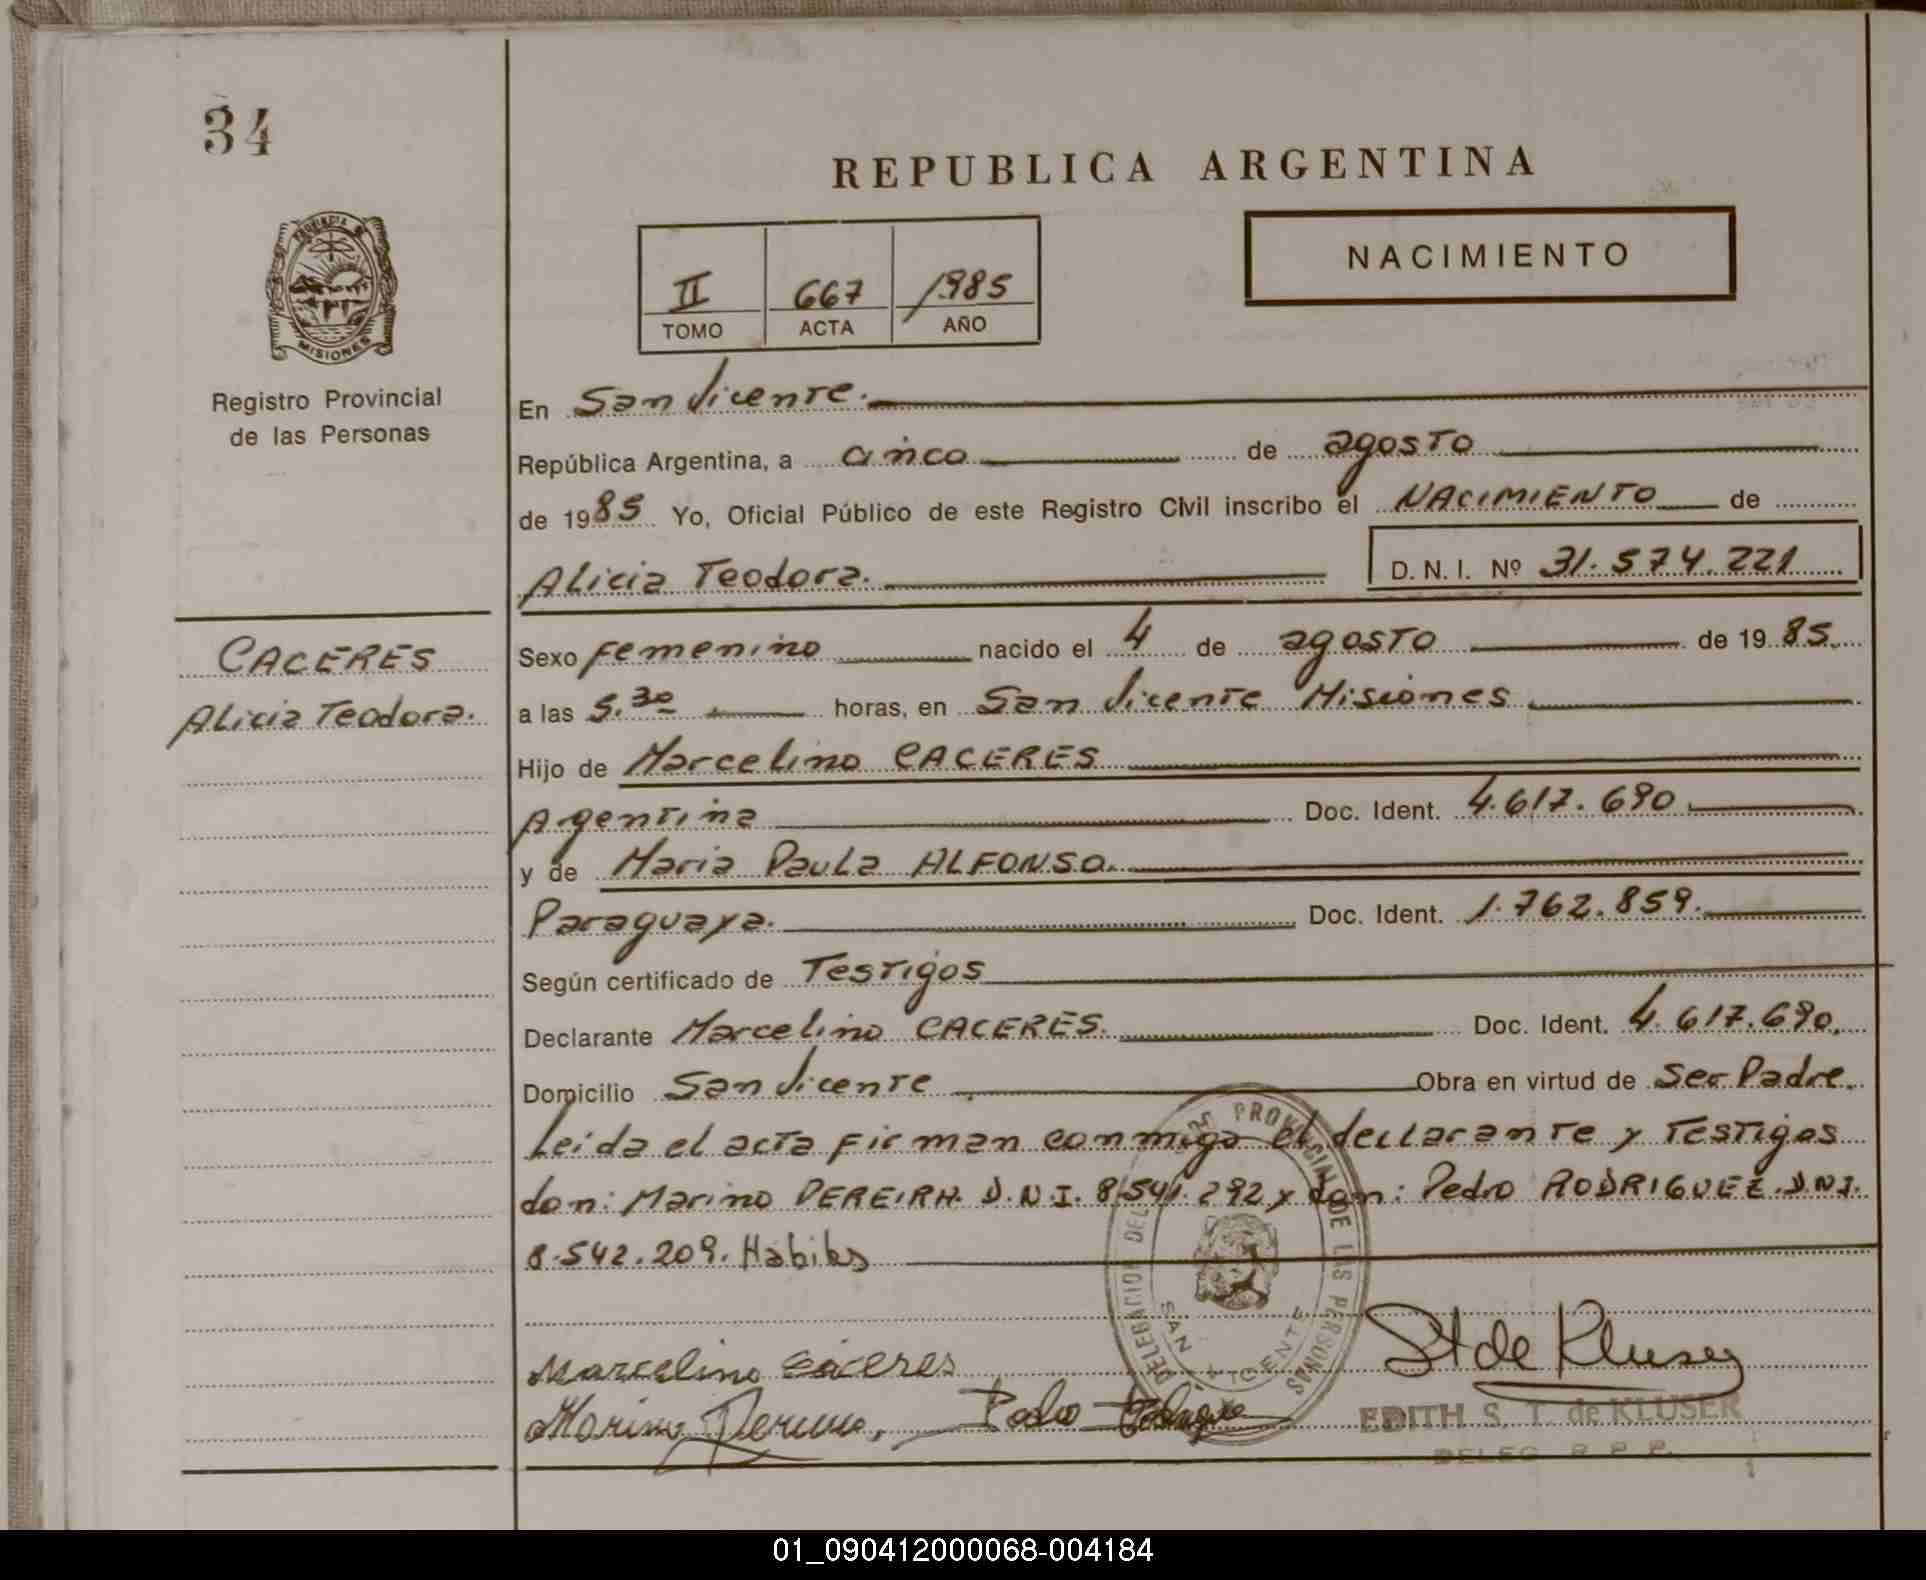 34
REPUBLICA ARGENTINA
NACIMIENTO
II 667 1985
TOMO ACTA AÑO
PROVINCIA DE
MISIONES
Registro Provincial
de las Personas
En San Vicente.
República Argentina, a cinco de agosto
de 1985 Yo, Oficial Público de este Registro Civil inscribo el NACIMIENTO de
Alicia Teodora. D. N. I. Nº 31.574.221
CACERES
Alicia Teodora.
Sexo femenino nacido el 4 de agosto de 1985.
a las 5.30 horas, en San Vicente Misiones
Hijo de Marcelino CACERES
Argentina Doc. Ident. 4.617.690
y de Maria Paula ALFONSO.
Paraguaya. Doc. Ident. 1.762.859.
Según certificado de Testigos
Declarante Marcelino CACERES. Doc. Ident. 4.617.690.
Domicilio San Vicente Obra en virtud de Ser Padre.
Leida el acta firman conmigo el declarante y Testigos
don: Marino PEREIRA. D.N.I. 8.541.292 y don: Pedro RODRIGUEZ. D.N.I.
8.542.209. Habiles
DELEGACION DEL PROVINCIAL DE LAS PERSONAS
SAN VICENTE
Marcelino Cáceres
St de Kluser
Marino Pereira. Pedro
EDITH S. T. de KLUSER
DELEG. R. P. P.
01_090412000068-004184